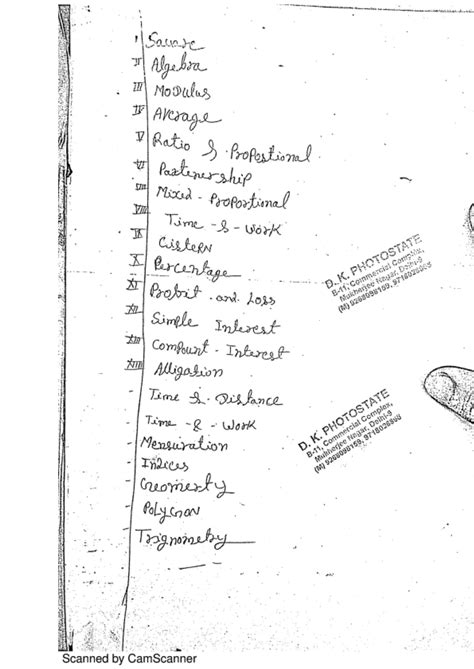 I Square
II Algebra
III Modulus
IV Average
V Ratio & Propestional
VI Partenership
VII Mixed - Proportional
VIII Time - & - Work
IX Cistern
X Percentage
XI Profit and Loss
XII Simple Interest
XIII Compount - Interest
XIIII Alligation
- Time & Distance
- Time - & - Work
- Mensuration
- Indices
- Geomerty
- Polygon
- Trignometry
D. K. PHOTOSTATE
B-11, Commercial Complex,
Mukherjee Nagar, Delhi-9
D. K. PHOTOSTATE
B-11, Commercial Complex,
Mukherjee Nagar, Delhi-9
Scanned by CamScanner